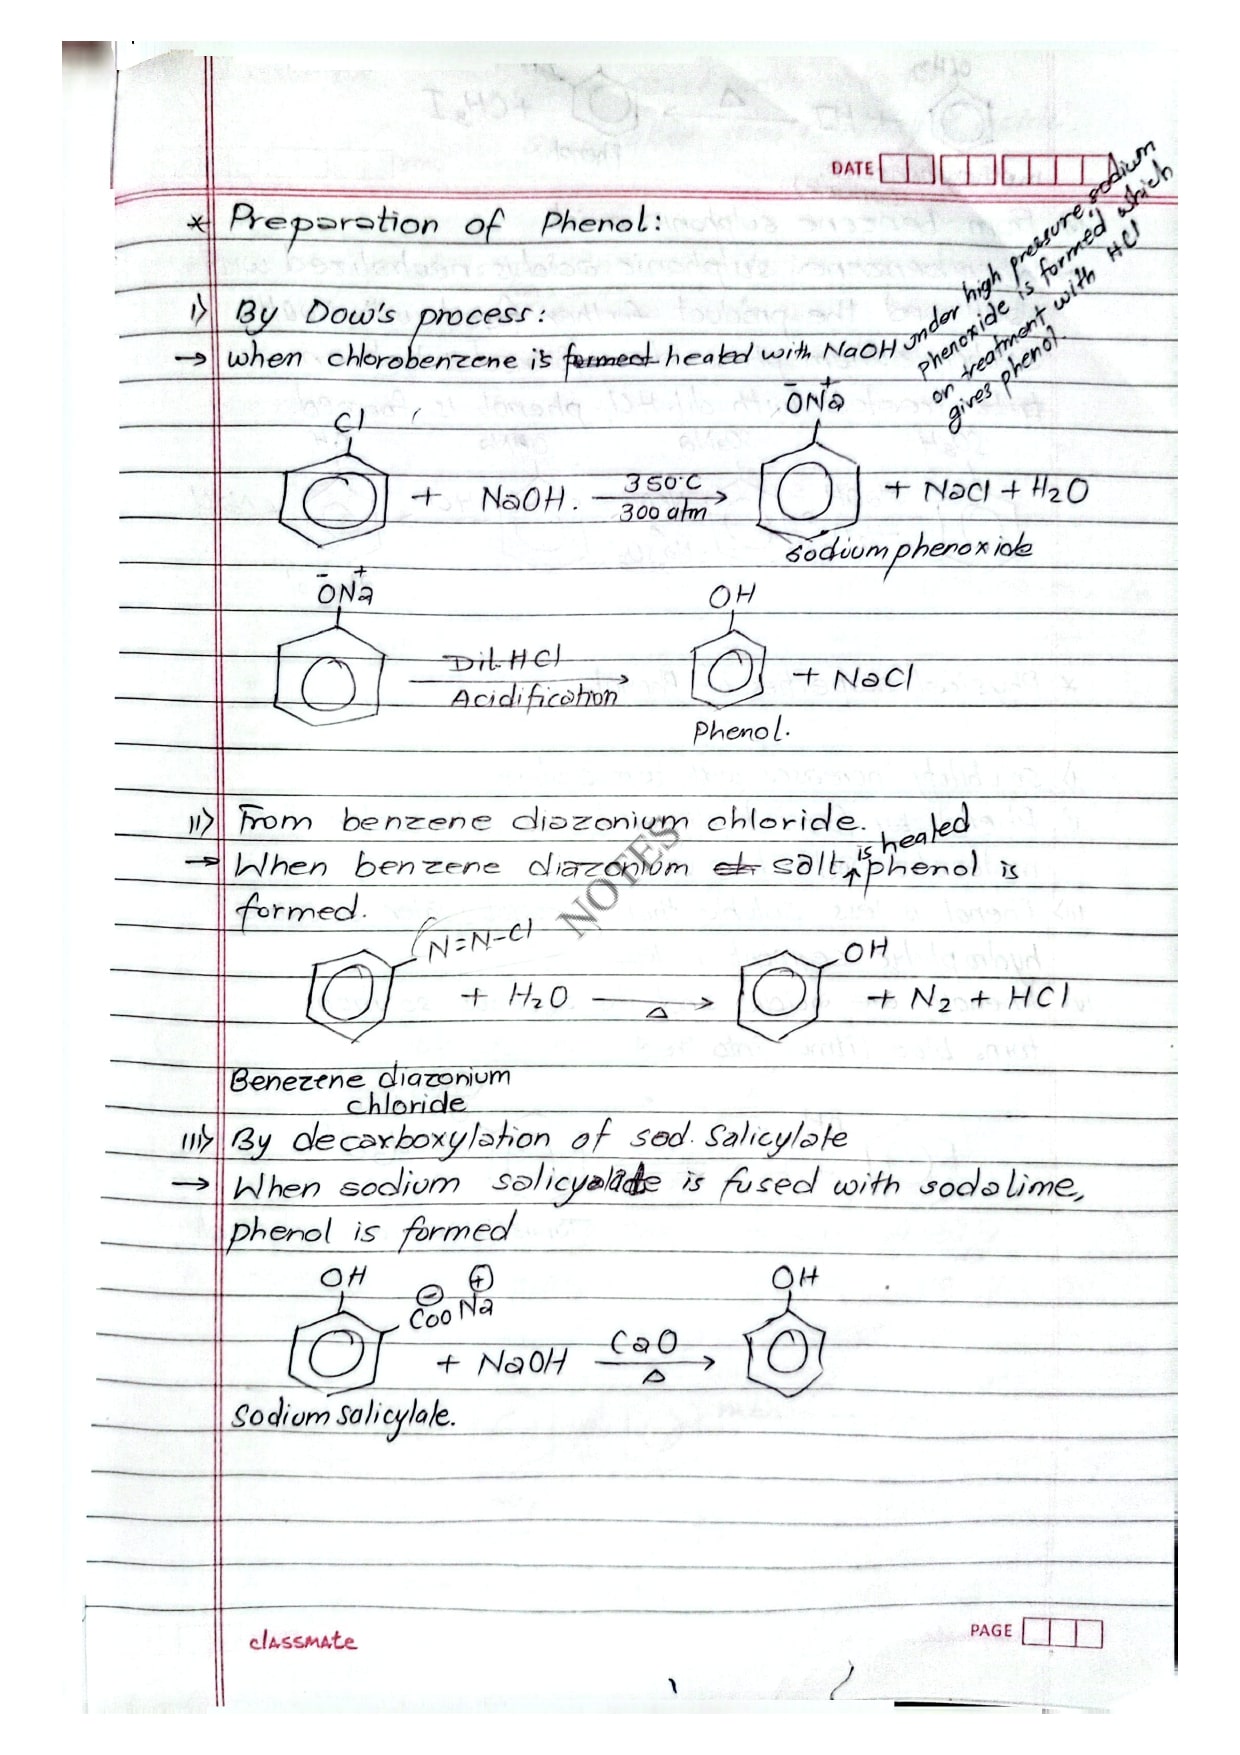 DATE
* Preparation of Phenol:
i) By Dow's process:
→ when chlorobenzene is formed heated with NaOH under high pressure, sodium
phenoxide is formed which
on treatment with HCl
gives phenol.
Cl
ŌNa⁺
+ NaOH. 350°C
300 atm
+ NaCl + H2O
Sodium phenoxide
ŌNa⁺
OH
Dil. HCl
Acidification
+ NaCl
Phenol.
ii) From benzene diazonium chloride.
→ When benzene diazonium ch salt is heated phenol is
formed.
NOTES
N=N-Cl
OH
+ H2O → Δ
+ N2 + HCl
Benezene diazonium
chloride
iii) By decarboxylation of sod. Salicylate
→ When sodium salicyalate is fused with sodalime,
phenol is formed
OH
COO⊖ Na⊕
OH
+ NaOH CaO
Δ
Sodium salicylate.
classmate
PAGE